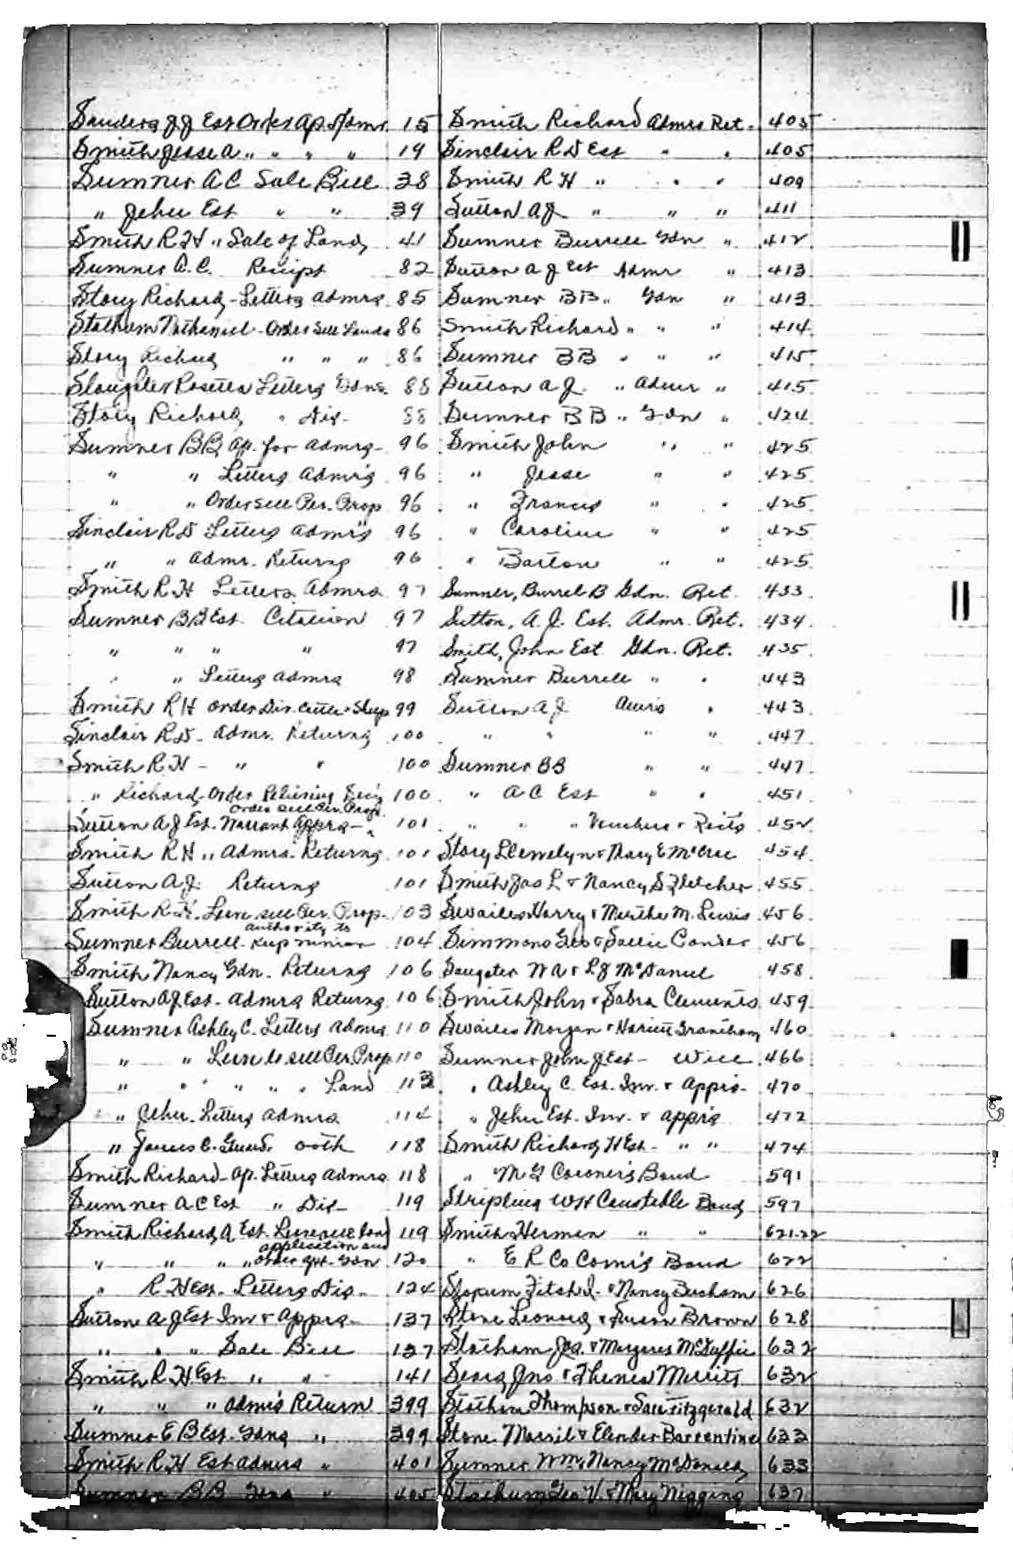 Sanders J J Est Order Ap. Admr. 15
Smith Jesse A " " " " 19
Sumner A C Sale Bill 38
" Jehu Est " " 39
Smith R H " Sale of Land 41
Sumner A. C. Receipt 82
Story Richard - Letters Admrs 85
Statham Nathaniel - Order Sell Lands 86
Story Richard " " " 86
Slaughter Rosetta Letters Gdns. 88
Story Richard " Dis- 88
Sumner B B Ap. for Admrs- 96
" " Letters Admr's 96
" " Order sell Per. Prop 96
Sinclair R D Letters Admr's 96
" " Admr. Returns 96
Smith R H Letters Admrs 97
Sumner B B Est. Citation 97
" " " " 97
" " Letters Admrs 98
Smith R H Order Div. Cattle & Sheep 99
Sinclair R D - Admr. Returns 100
Smith R H - " " 100
" Richard - Order 100
Order sell Per. Prop.
Sutton A J Est. Warrant Apprs - " 101
Smith R H " Admrs. Returns 101
Sutton A. J. Returns 101
Smith R. H. Leave sell Per. Prop. 103
authority to
Sumner Burrell - Keep minior 104
Smith Nancy Gdn. Returns 106
Sutton A J Est - Admrs Returns 106
Sumner Ashley C. Letters Admrs 110
" " Leave to sell Per. Prop. 110
" " " " " Land 113
" Jehu. Letters Admrs 114
" James C. Guard. oath 118
Smith Richard - Ap. Letters Admrs 118
Sumner A C Est " Dis - 119
Smith Richard A Est. Leave sell Land 119
application and
" " " " Order Apt. Gdn 120
" R. H Est. Letters Dis- 124
Sutton A J Est Inv & Apprs - 137
" " " Sale Bill 137
Smith R. H Est " " 141
" " " Admis Return 399
Sumner E B Est. Gdns " 399
Smith R. H Est Admrs " 401
Sumner B B Gdns " 405
Smith Richard Admrs Ret. 405
Sinclair R D Est " " 405
Smith R H " " " 409
Sutton A J " " " 411
Sumner Burrell Gdn " 412
Sutton A J Est Admr " 413
Sumner B B " Gdn " 413
Smith Richard " " " 414
Sumner B B " " " 415
Sutton A J. " Admr " 415
Sumner B B " Gdn " 424
Smith John " " 425
" Jesse " " 425
" Francis " " 425
" Caroline " " 425
" Barton " " 425
Sumner, Burrel B Gdn. Ret. 433
Sutton, A. J. Est. Admr. Ret. 434
Smith, John Est Gdn. Ret. 435
Sumner Burrell " " 443
Sutton A J " 443
" " " " 447
Sumner B B " " 447
" A C Est " " 451
" " " Vouchers & Rects 452
Story Llewelyn & Mary E McCree 454
Smith Jas L & Nancy S Fletcher 455
Swailes Harry & Martha M. Lewis 456
Simmons Geo & Sallie Conder 456
Saugster W A & L J McDaniel 458
Smith John & Sabra Clements 459
Swailes Morgan & Hariett Grantham 460
Sumner John J Est - Will 466
" Ashley C. Est. Inv. & Appr's - 470
" Jehu Est. Inv. & appr's 472
Smith Richard H Est - " " 474
" M G Coroner's Bond 591
Stripling W H Constable Bond 597
Smith Herman " " 621-22
" E R Co Comr's Bond 622
Slopum Fitch & Nancy Bucham 626
Stone Leonard & Susan Brown 628
Statham Jas. & Margaret McDuffie 632
Sears Jno & Merritt 632
Stathan Thompson & Sale Fitzgerald 632
Stone Marril & Elender Barrentine 633
Sumner Wm & Nancy McDonald 633
Statham Geo V. & Mary Wiggins 637